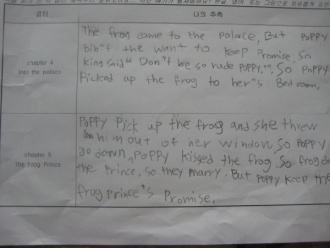 내용 추측
The frog came to the palace, But POPPY
didn't the want to keep Promise. So
king said" Don't be so rude POPPY,", So POPPY
Picked up the frog to her's Bed room.
chapter 4
Into the palace
POPPY Pick up the frog and she threw
him out of her window. So POPPY
go down, POPPY kissed the frog. So frog
the Prince, so they marry. But POPPY keep the
frog prince's Promise.
chapter 5
The Frog Prince